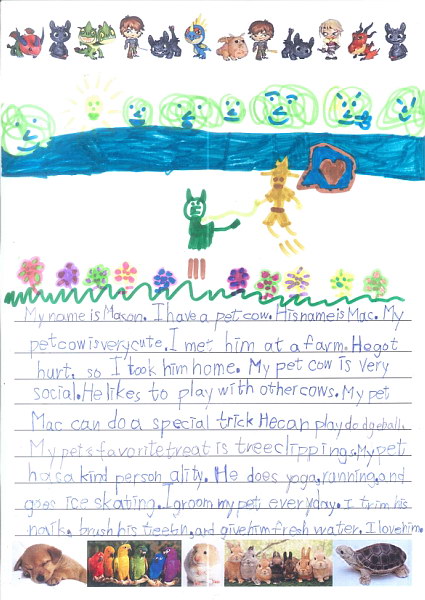 My name is Mason. I have a pet cow. His name is Mac. My
pet cow is very cute. I met him at a farm. He got
hurt, so I took him home. My pet cow is very
social. He likes to play with other cows. My pet
Mac can do a special trick He can play dodgeball.
My pet's favorite treat is tree clippings. My pet
has a kind personality. He does yoga, running, and
goes ice skating. I groom my pet everyday. I trim his
nails, brush his teeth, and give him fresh water. I love him.